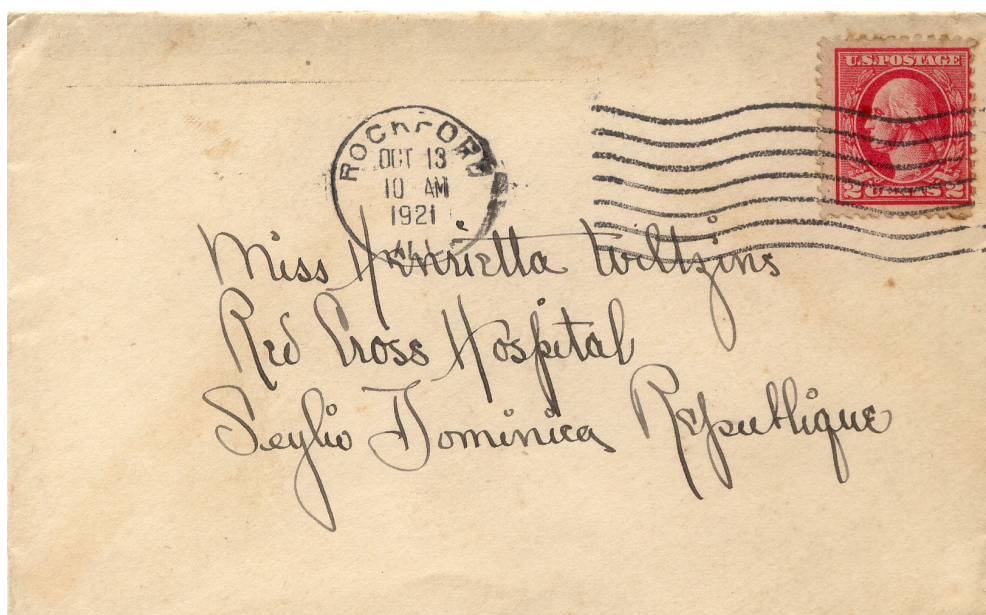 U.S. POSTAGE
2 CENTS 2
ROCKFORD
OCT 13
10 AM
1921
ILL.
Miss Henrietta Wiltzins
Red Cross Hospital
Seylio Dominica Republique